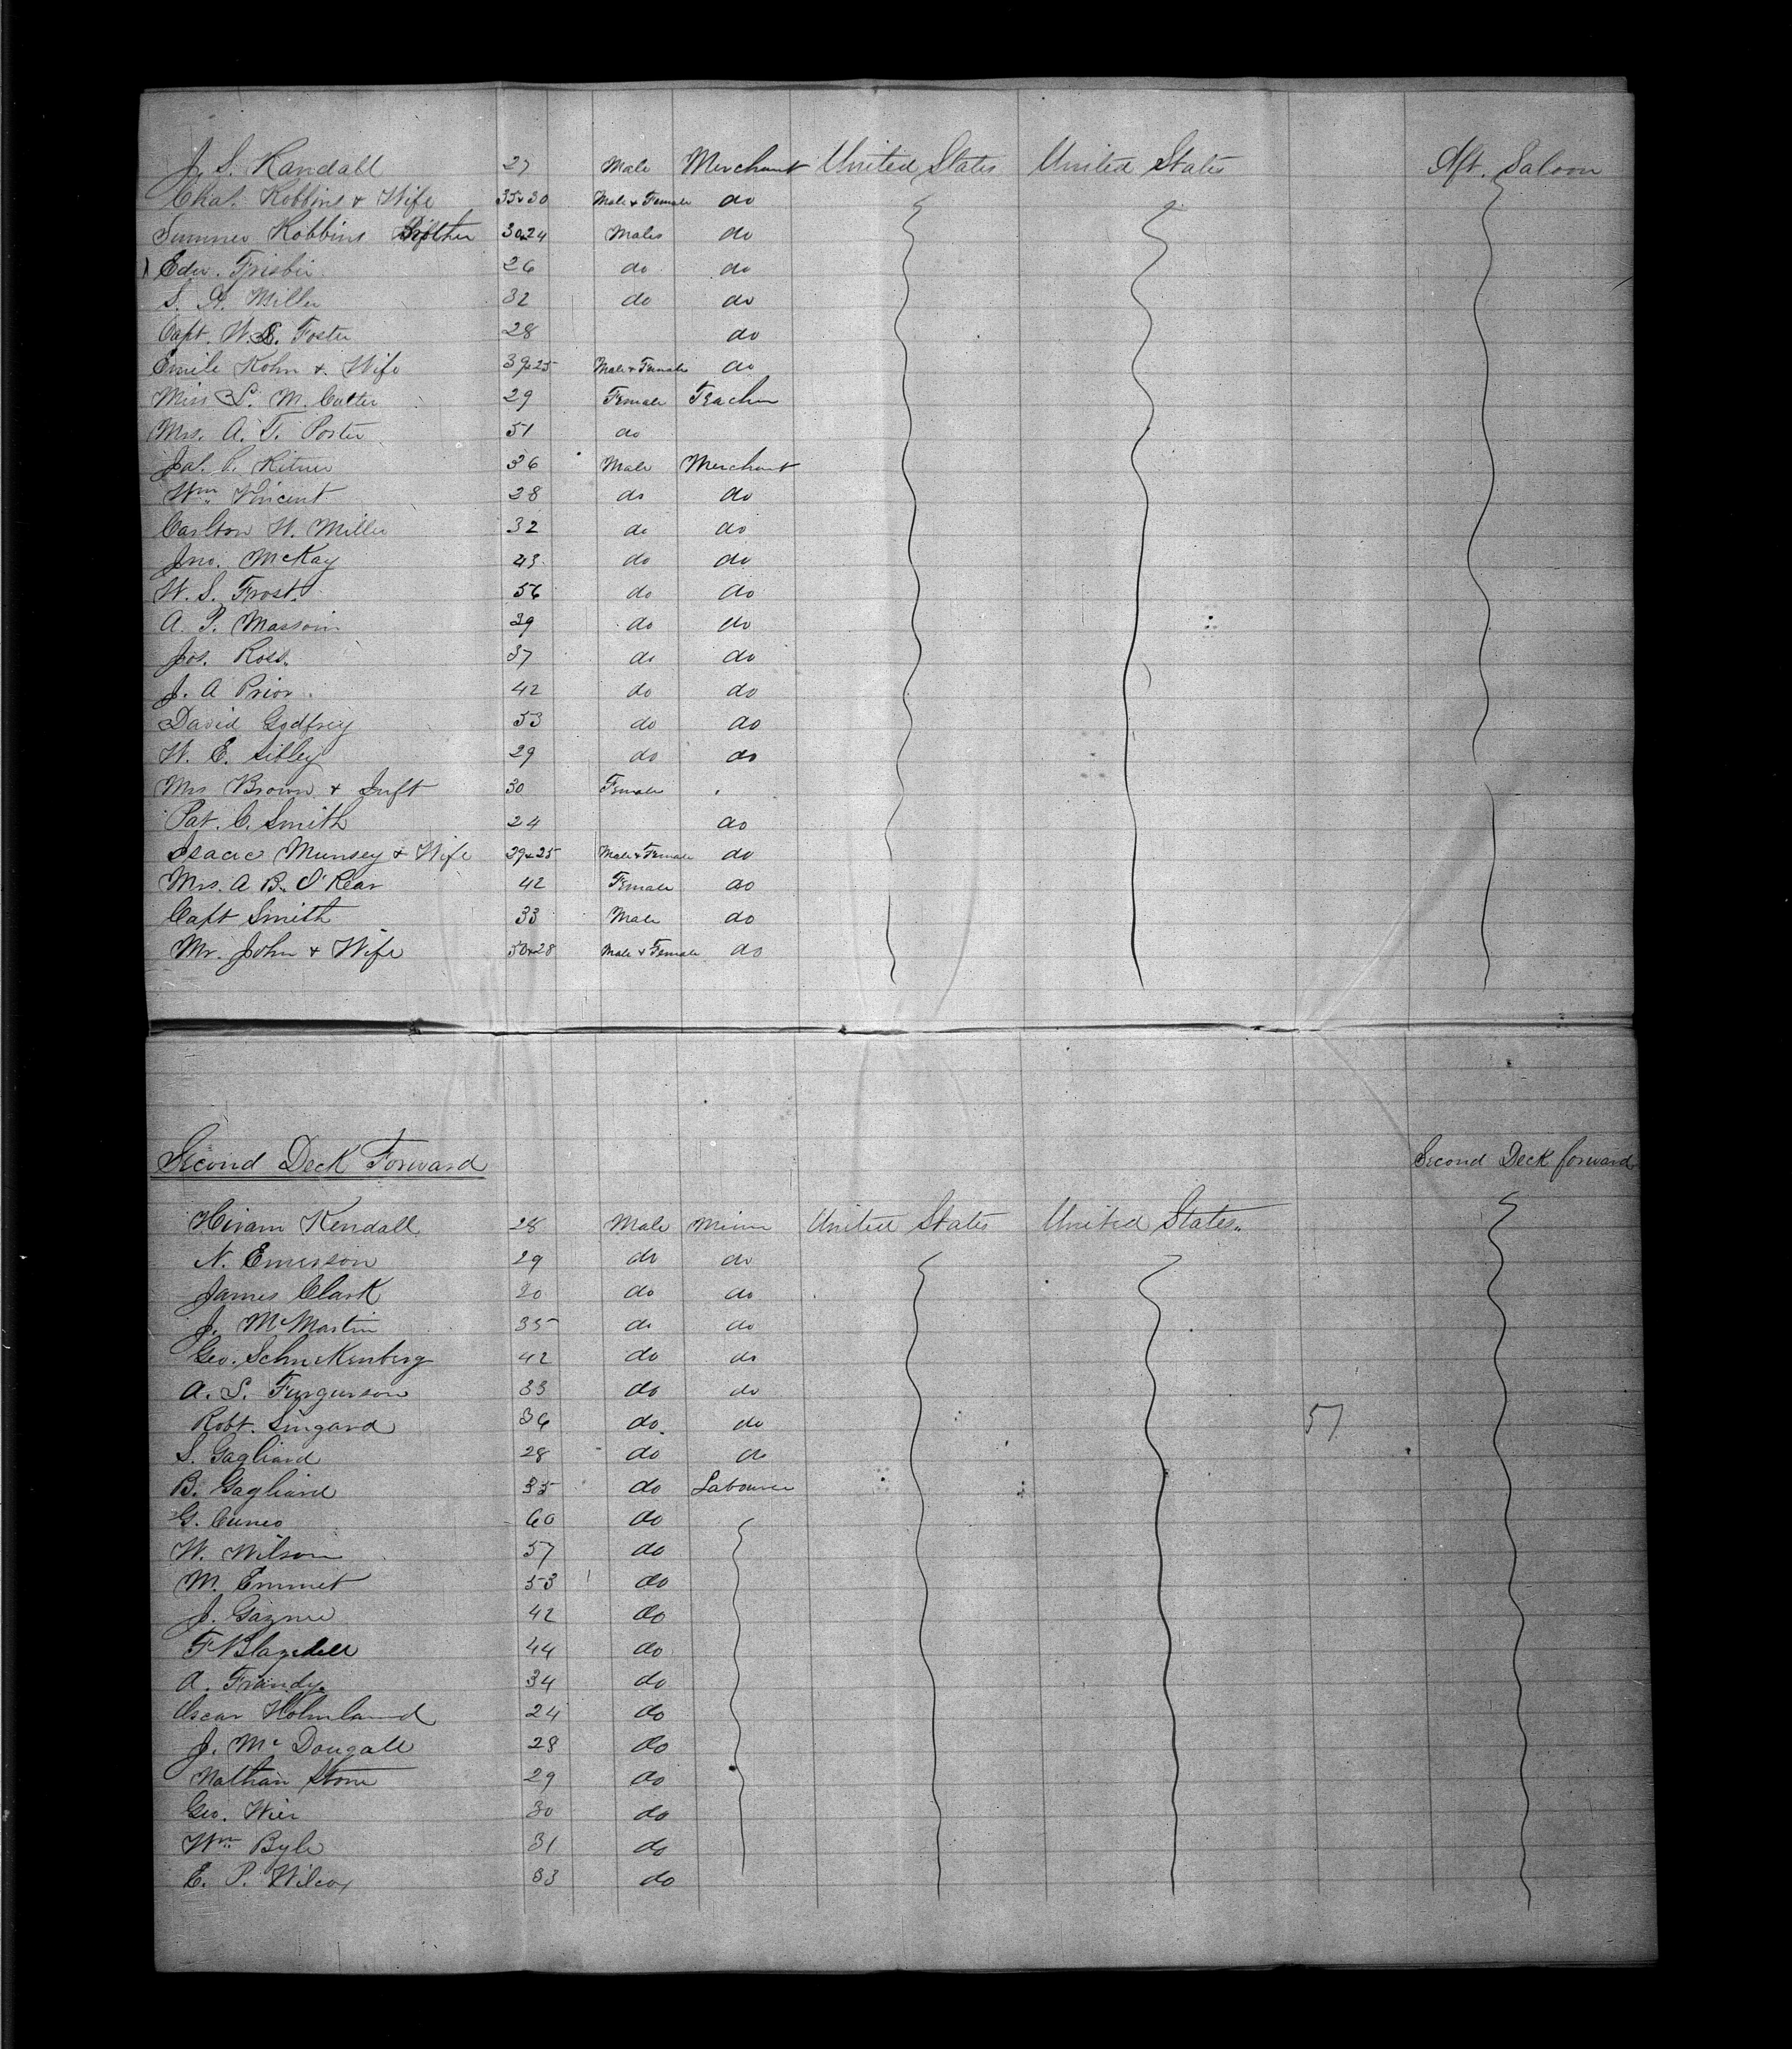 J. S. Randall 27 Male Merchant United States United States Aft. Saloon
Chas. Robbins & Wife 35 & 30 Male & Female do
Sumner Robbins Brother 30 & 24 Males do
Edw. Frisbie 26 do do
S. A. Miller 32 do do
Capt. W. S. Foster 28 do
Emile Kohn & Wife 39 & 25 Male & Female do
Miss S. M. Cutter 29 Female Teacher
Mrs. A. T. Porter 51 do
Jas. P. Ritner 36 Male Merchant
Wm. Vincent 28 do do
Carlton W. Miller 32 do do
Jno. McKay 43 do do
W. S. Frost. 56 do do
A. P. Massoin 39 do do
Jos. Ross. 37 do do
J. A Prior. 42 do do
David Godfrey 53 do do
W. E. Sibley 29 do do
Mrs Brown & Inft 30 Female
Pat. C. Smith 24 do
Isaac Munsey & Wife 29 & 25 Male & Female do
Mrs. A B. O'Rear 42 Female do
Capt Smith 33 Male do
Mr. John & Wife 50 & 28 Male & Female do
Second Deck Forward Second Deck forward
Hiram Kendall 28 Male Miner United States United States
N. Emerson 29 do do
James Clark 20 do do
J. McMartin 35 do do
Geo. Schuckenberg 42 do do
A. S. Furgurson 33 do do
Robt. Singard 36 do do 57
S. Gagliard 28 do do
B. Gagliard 35 do Labourer
G. Cuneo 60 do
W. Wilson 57 do
M. Emmet 53 do
J. 42 do
F Blazdell 44 do
A. Frandy 34 do
Oscar Holmland 24 do
J. Mc Dougall 28 do
Nathan Stone 29 do
Geo. Wier 30 do
Wm. Byle 31 do
E. P. Wilcox 33 do